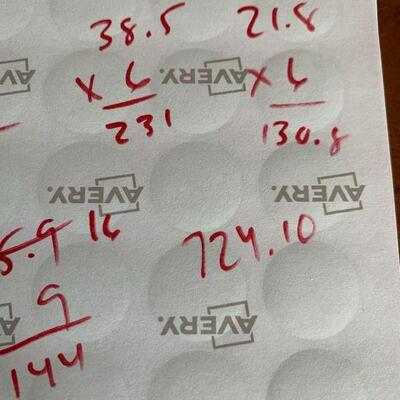 38.5 21.8
x 6 AVERY. x 6
231 130.8
AVERY. AVERY.
5.9 16 724.10
9
AVERY.
144